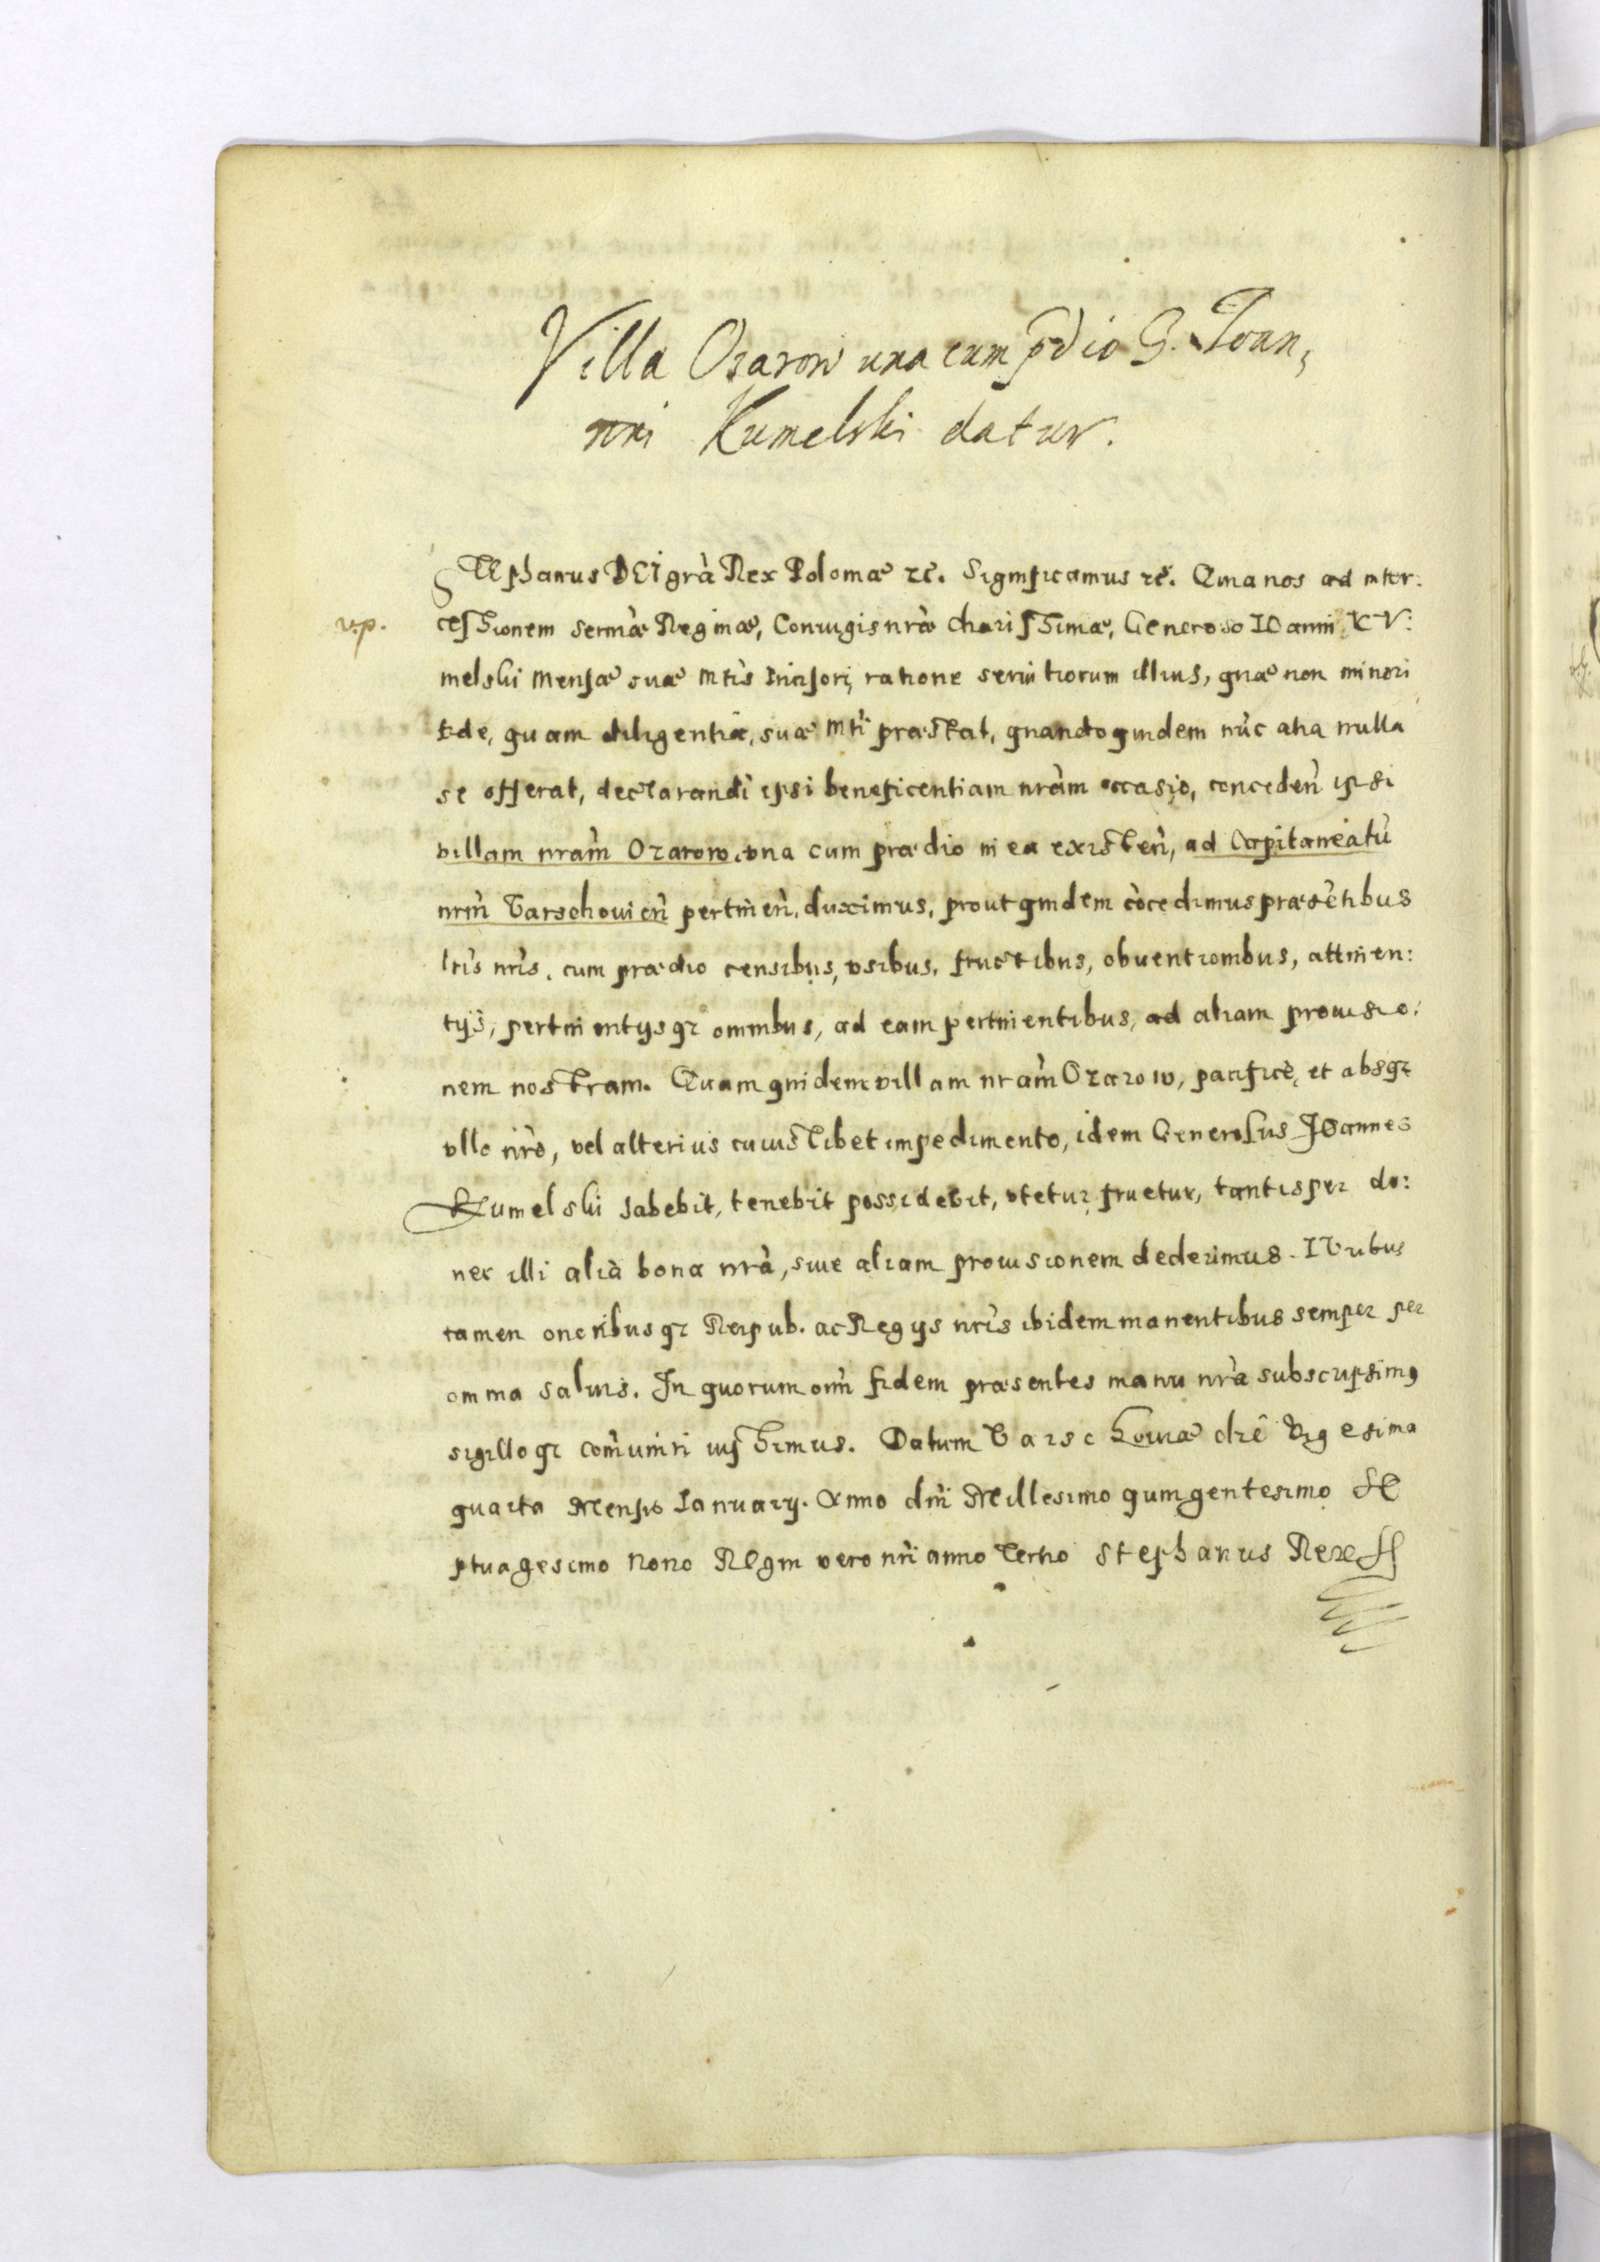 Villa Ozarow una cum pdio G. Joan,
nni Kumelski datur.
STEphanus DEI grà Rex Poloniæ zč. Significamus zč. Quia nos ad inter:
v.p.
cessionem sermæ Reginæ, Coniugis nræ charissimæ, Generoso IOanni KV:
melski Mensæ suæ Mtis Incisori, ratione servitiorum illius, quæ non minori
fide, quam diligentia, suæ Mti præstat, quandoquidem nuc alia nulla
se offerat, declarandi ipsi beneficentiam nram occasio, conceden ipsi
villam nram Ozarow, vna cum prædio in ea existen, ad Capitaneatu
nrm Varschovien pertinen, duximus, prout quidem cocedimus præsetibus
lris nris, cum prædio censibus, vsibus, fructibus, obuentionibus, attinen:
tijs, pertinentijsqz omnibus, ad eam pertinentibus, ad aliam prouisio:
nem nostram. Quam quidem villam nram Ozarow, pacificè, et absqz
vllo nro, vel alterius cuiuslibet impedimento, idem Generosus JOannes
Kumelski habebit, tenebit possidebit, vtetur fruetur, tantisper do:
nec illi alia bona nra, siue aliam prouisionem dederimus. IVribus
tamen oneribusqz Reipub. ac Regijs nris ibidem manentibus semper per
omnia saluis. In quorum om fidem præsentes manu nra subscripsimq
sigilloqz comuniri iussimus. Datum Varschouiæ die Vigesima
quarta Mensis Ianuarij. Anno dni Millesimo quingentesimo SE
ptuagesimo Nono REgni vero nri anno Tertio Stephanus Rex ss